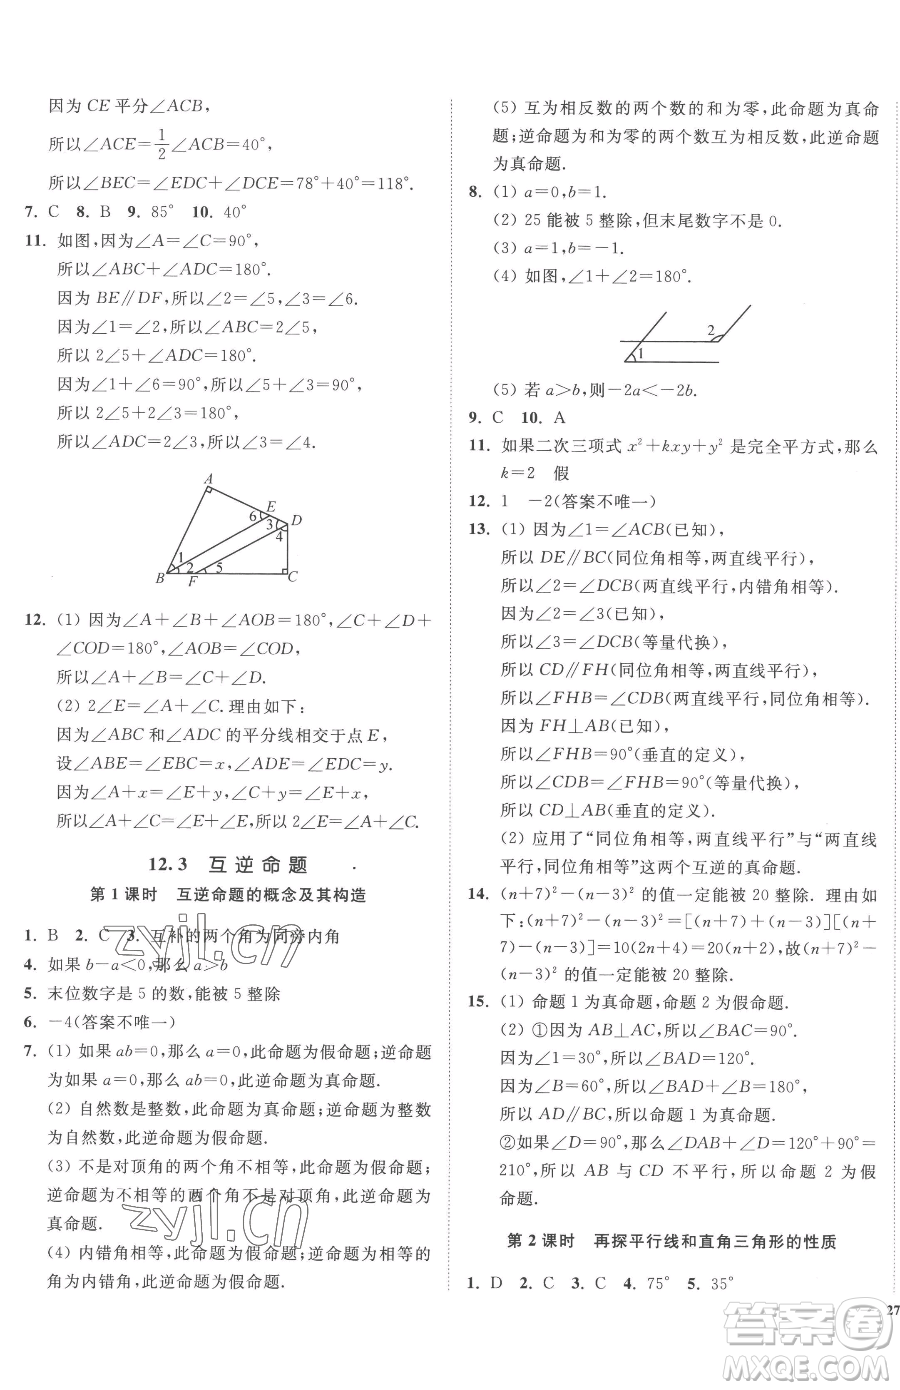 因为 CE 平分∠ACB，
所以∠ACE=1/2∠ACB=40°，
所以∠BEC=∠EDC+∠DCE=78°+40°=118°.
7. C  8. B  9. 85°  10. 40°
11. 如图，因为∠A=∠C=90°，
所以∠ABC+∠ADC=180°.
因为 BE∥DF，所以∠2=∠5，∠3=∠6.
因为∠1=∠2，所以∠ABC=2∠5，
所以 2∠5+∠ADC=180°.
因为∠1+∠6=90°，∠2=∠5，
所以 2∠5+2∠3=180°，
所以∠ADC=2∠3，所以∠3=∠4.
A
E
6
3
D
4
1
2
5
B
F
C
12. (1) 因为∠A+∠B+∠AOB=180°，∠C+∠D+
∠COD=180°，∠AOB=∠COD，
所以∠A+∠B=∠C+∠D.
(2) 2∠E=∠A+∠C. 理由如下：
因为∠ABC 和∠ADC 的平分线相交于点 E，
设∠ABE=∠EBC=x，∠ADE=∠EDC=y.
因为∠A+x=∠E+y，∠C+y=∠E+x，
所以∠A+∠C=∠E+∠E，所以 2∠E=∠A+∠C.
12.3 互逆命题
第 1 课时 互逆命题的概念及其构造
1. B  2. C  3. 互补的两个角为同旁内角
4. 如果 b-a<0，那么 a>b
5. 末位数字是 5 的数，能被 5 整除
6. -4(答案不唯一)
7. (1) 如果 ab=0，那么 a=0，此命题为假命题；逆命题
为如果 a=0，那么 ab=0，此逆命题为真命题.
(2) 自然数是整数，此命题为真命题；逆命题为整数
为自然数，此逆命题为假命题.
(3) 不是对顶角的两个角不相等，此命题为假命题；
逆命题为不相等的两个角不是对顶角，此逆命题为
真命题.
(4) 内错角相等，此命题为假命题；逆命题为相等的
角为内错角，此逆命题为假命题.
zyjl.cn
zyjl.cn
(5) 互为相反数的两个数的和为零，此命题为真命
题；逆命题为和为零的两个数互为相反数，此逆命题
为真命题.
8. (1) a=0，b=1.
(2) 25 能被 5 整除，但末尾数字不是 0.
(3) a=1，b=-1.
(4) 如图，∠1+∠2=180°.
2
1
(5) 若 a>b，则-2a<-2b.
9. C  10. A
11. 如果二次三项式 x²+kxy+y² 是完全平方式，那么
k=2  假
12. 1  -2(答案不唯一)
13. (1) 因为∠1=∠ACB(已知)，
所以 DE∥BC(同位角相等，两直线平行)，
所以∠2=∠DCB(两直线平行，内错角相等).
因为∠2=∠3(已知)，
所以∠3=∠DCB(等量代换)，
所以 CD∥FH(同位角相等，两直线平行)，
所以∠FHB=∠CDB(两直线平行，同位角相等).
因为 FH⊥AB(已知)，
所以∠FHB=90°(垂直的定义)，
所以∠CDB=∠FHB=90°(等量代换)，
所以 CD⊥AB(垂直的定义).
(2) 应用了“同位角相等，两直线平行”与“两直线
平行，同位角相等”这两个互逆的真命题.
14. (n+7)²-(n-3)² 的值一定能被 20 整除. 理由如
下：(n+7)²-(n-3)²=[(n+7)+(n-3)][(n+
7)-(n-3)]=10(2n+4)=20(n+2)，故(n+7)²-
(n-3)² 的值一定能被 20 整除.
15. (1) 命题 1 为真命题，命题 2 为假命题.
(2) ①因为 AB⊥AC，所以∠BAC=90°.
因为∠1=30°，所以∠BAD=120°.
因为∠B=60°，所以∠BAD+∠B=180°，
所以 AD∥BC，所以命题 1 为真命题.
②如果∠D=90°，那么∠DAB+∠D=120°+90°=
210°，所以 AB 与 CD 不平行，所以命题 2 为假
命题.
第 2 课时 再探平行线和直角三角形的性质
1. D  2. C  3. C  4. 75°  5. 35°
27
答案圈
MXQE.COM